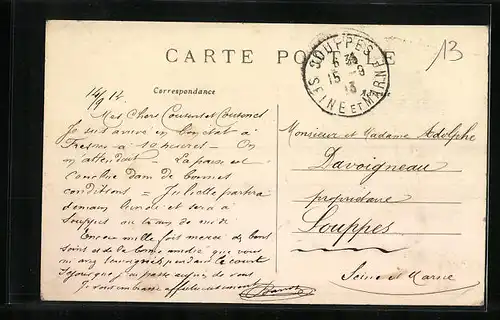 13
CARTE POSTALE
SOUPPES
15 -9
13
SEINE ET MARNE
Correspondance
14/9 13.
Mes Chers Cousin et Cousine
Je suis arrivé en bon état à
Fresnes à 10 heures = On
m'attendait = La paix est
conclue dans de bonnes
conditions = Juliette partira
demain lundi et sera à
Souppes au train de midi
Encore mille fois merci des bons
soins et de la bonne amitié que vous
m'avez témoignés pendant le court
séjour que j'ai passé auprès de vous
Je vous embrasse affectueusement
Monsieur et Madame Adolphe
Davoigneau
propriétaire
Souppes
Seine et Marne